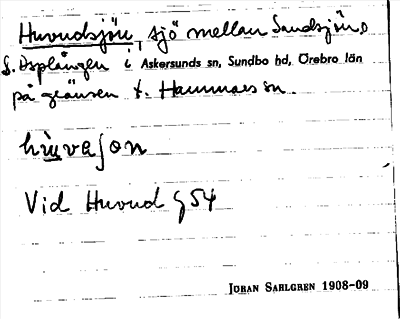 Huvudsjön, sjö mellan Sandsjön o
S. Åsplången i Askersunds sn, Sundbo hd, Örebro län
på gränsen t. Hammars sn.
Vid Huvud g 54
JOHAN SAHLGREN 1908-09